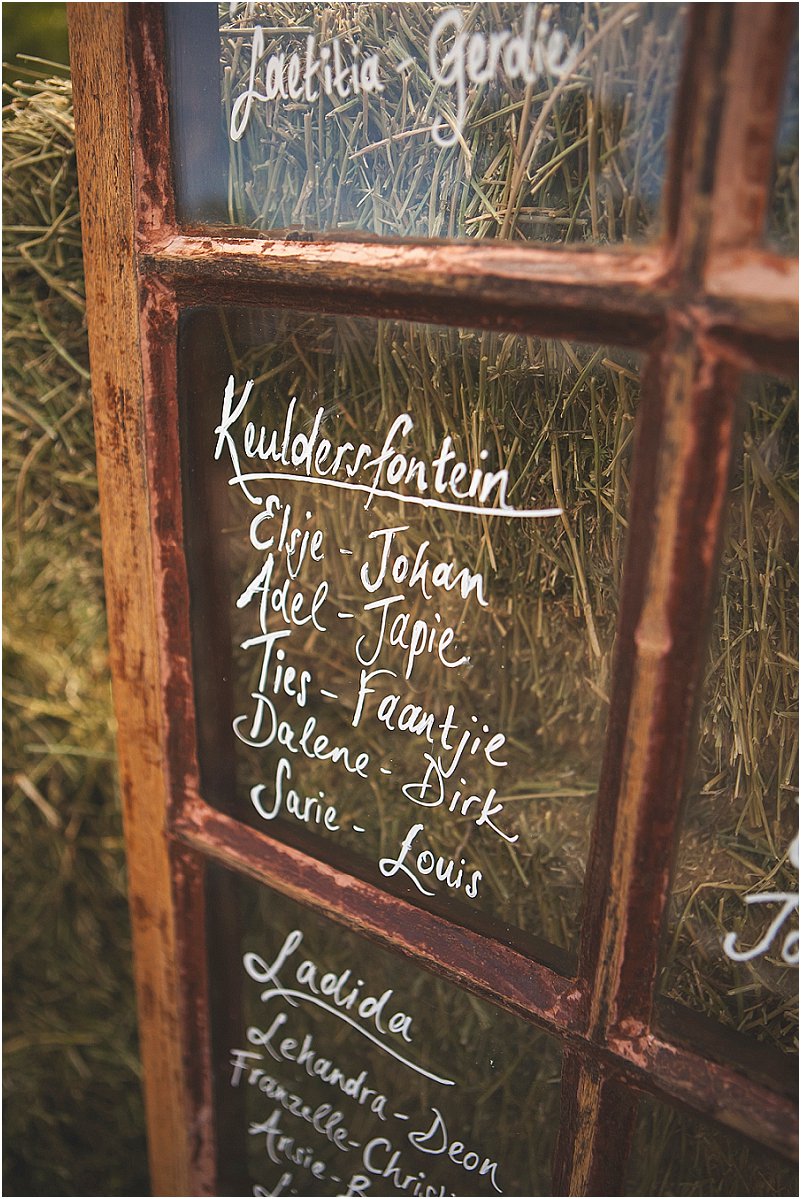 Laetitia - Gerdie
Keuldersfontein
Elsje - Johan
Adel - Japie
Ties - Faantjie
Dalene - Dirk
Sarie - Louis
Ladida
Lehandra - Deon
Franzelle -
Ansie -